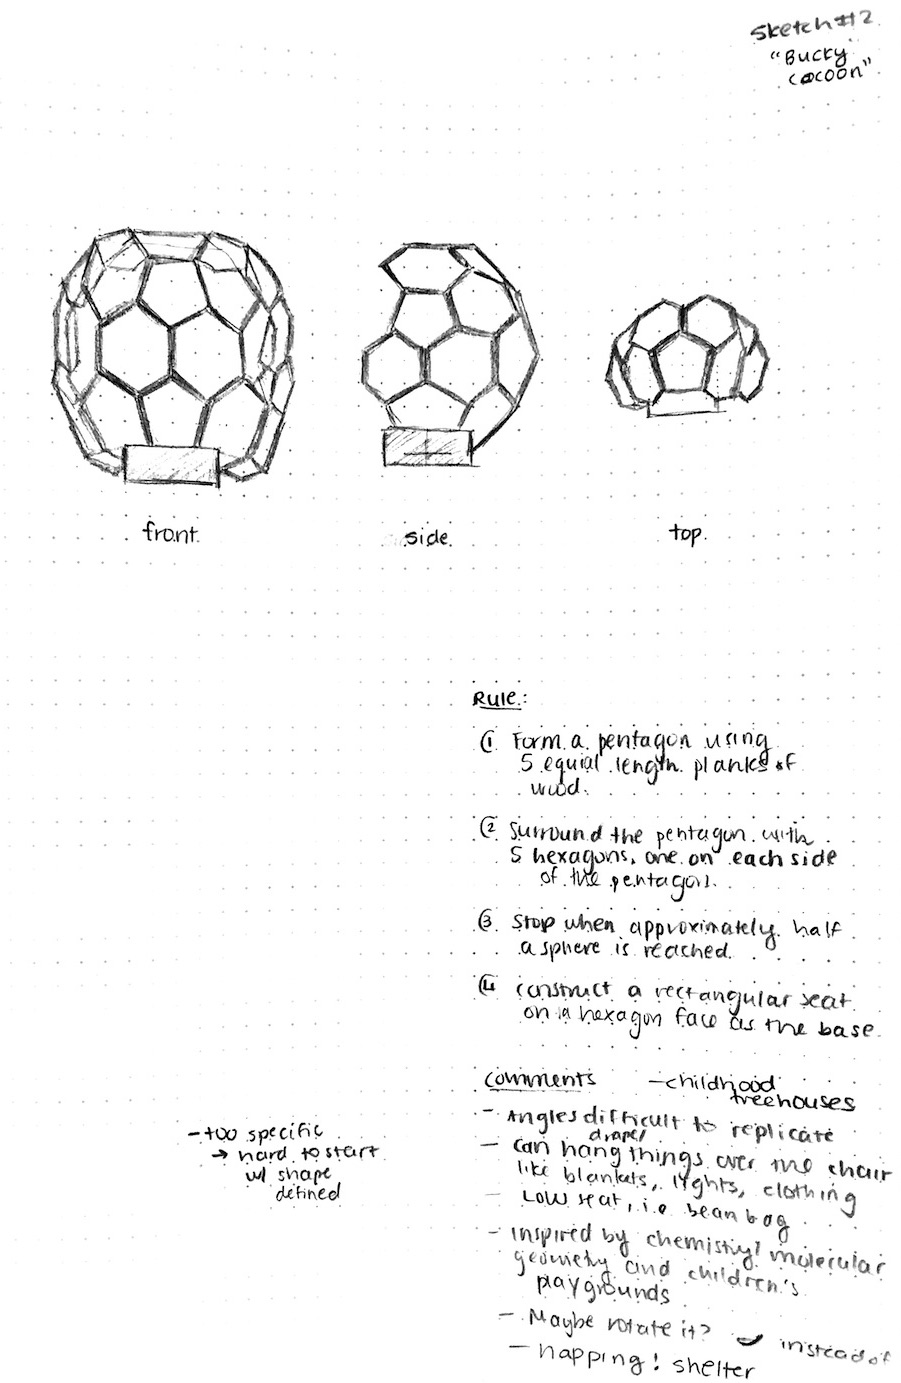 Sketch #2
"Bucky
cocoon"
front
side
top
Rule:
① Form a pentagon using
5 equal length planks of
wood.
② Surround the pentagon with
5 hexagons, one on each side
of the pentagon.
③ Stop when approximately half
a sphere is reached.
④ construct a rectangular seat
on a hexagon face as the base.
Comments
- childhood
treehouses
- Angles difficult to replicate
drape/
- can hang things over the chair
like blankets, lights, clothing
- Low seat, i.e. bean bag
- Inspired by chemistry/ molecular
geometry and children's
playgrounds
- Maybe rotate it? instead of
- napping! shelter
- too specific
→ hard to start
w/ shape
defined